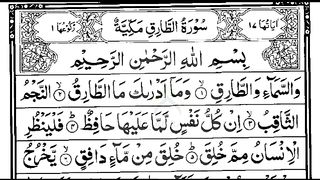 اٰيَاتُهَا ١٧ سُوْرَةُ الطَّارِقِ مَكِّيَّةٌ رُكُوْعُهَا ١
بِسْمِ اللهِ الرَّحْمٰنِ الرَّحِيْمِ
وَالسَّمَآءِ وَالطَّارِقِ ۙ١ وَمَآ اَدْرٰىكَ مَا الطَّارِقُ ۙ٢ النَّجْمُ
الثَّاقِبُ ۙ٣ اِنْ كُلُّ نَفْسٍ لَّمَّا عَلَيْهَا حَافِظٌ ؕ٤ فَلْيَنْظُرِ
الْاِنْسَانُ مِمَّ خُلِقَ ؕ٥ خُلِقَ مِنْ مَّآءٍ دَافِقٍ ۙ٦ يَّخْرُجُ